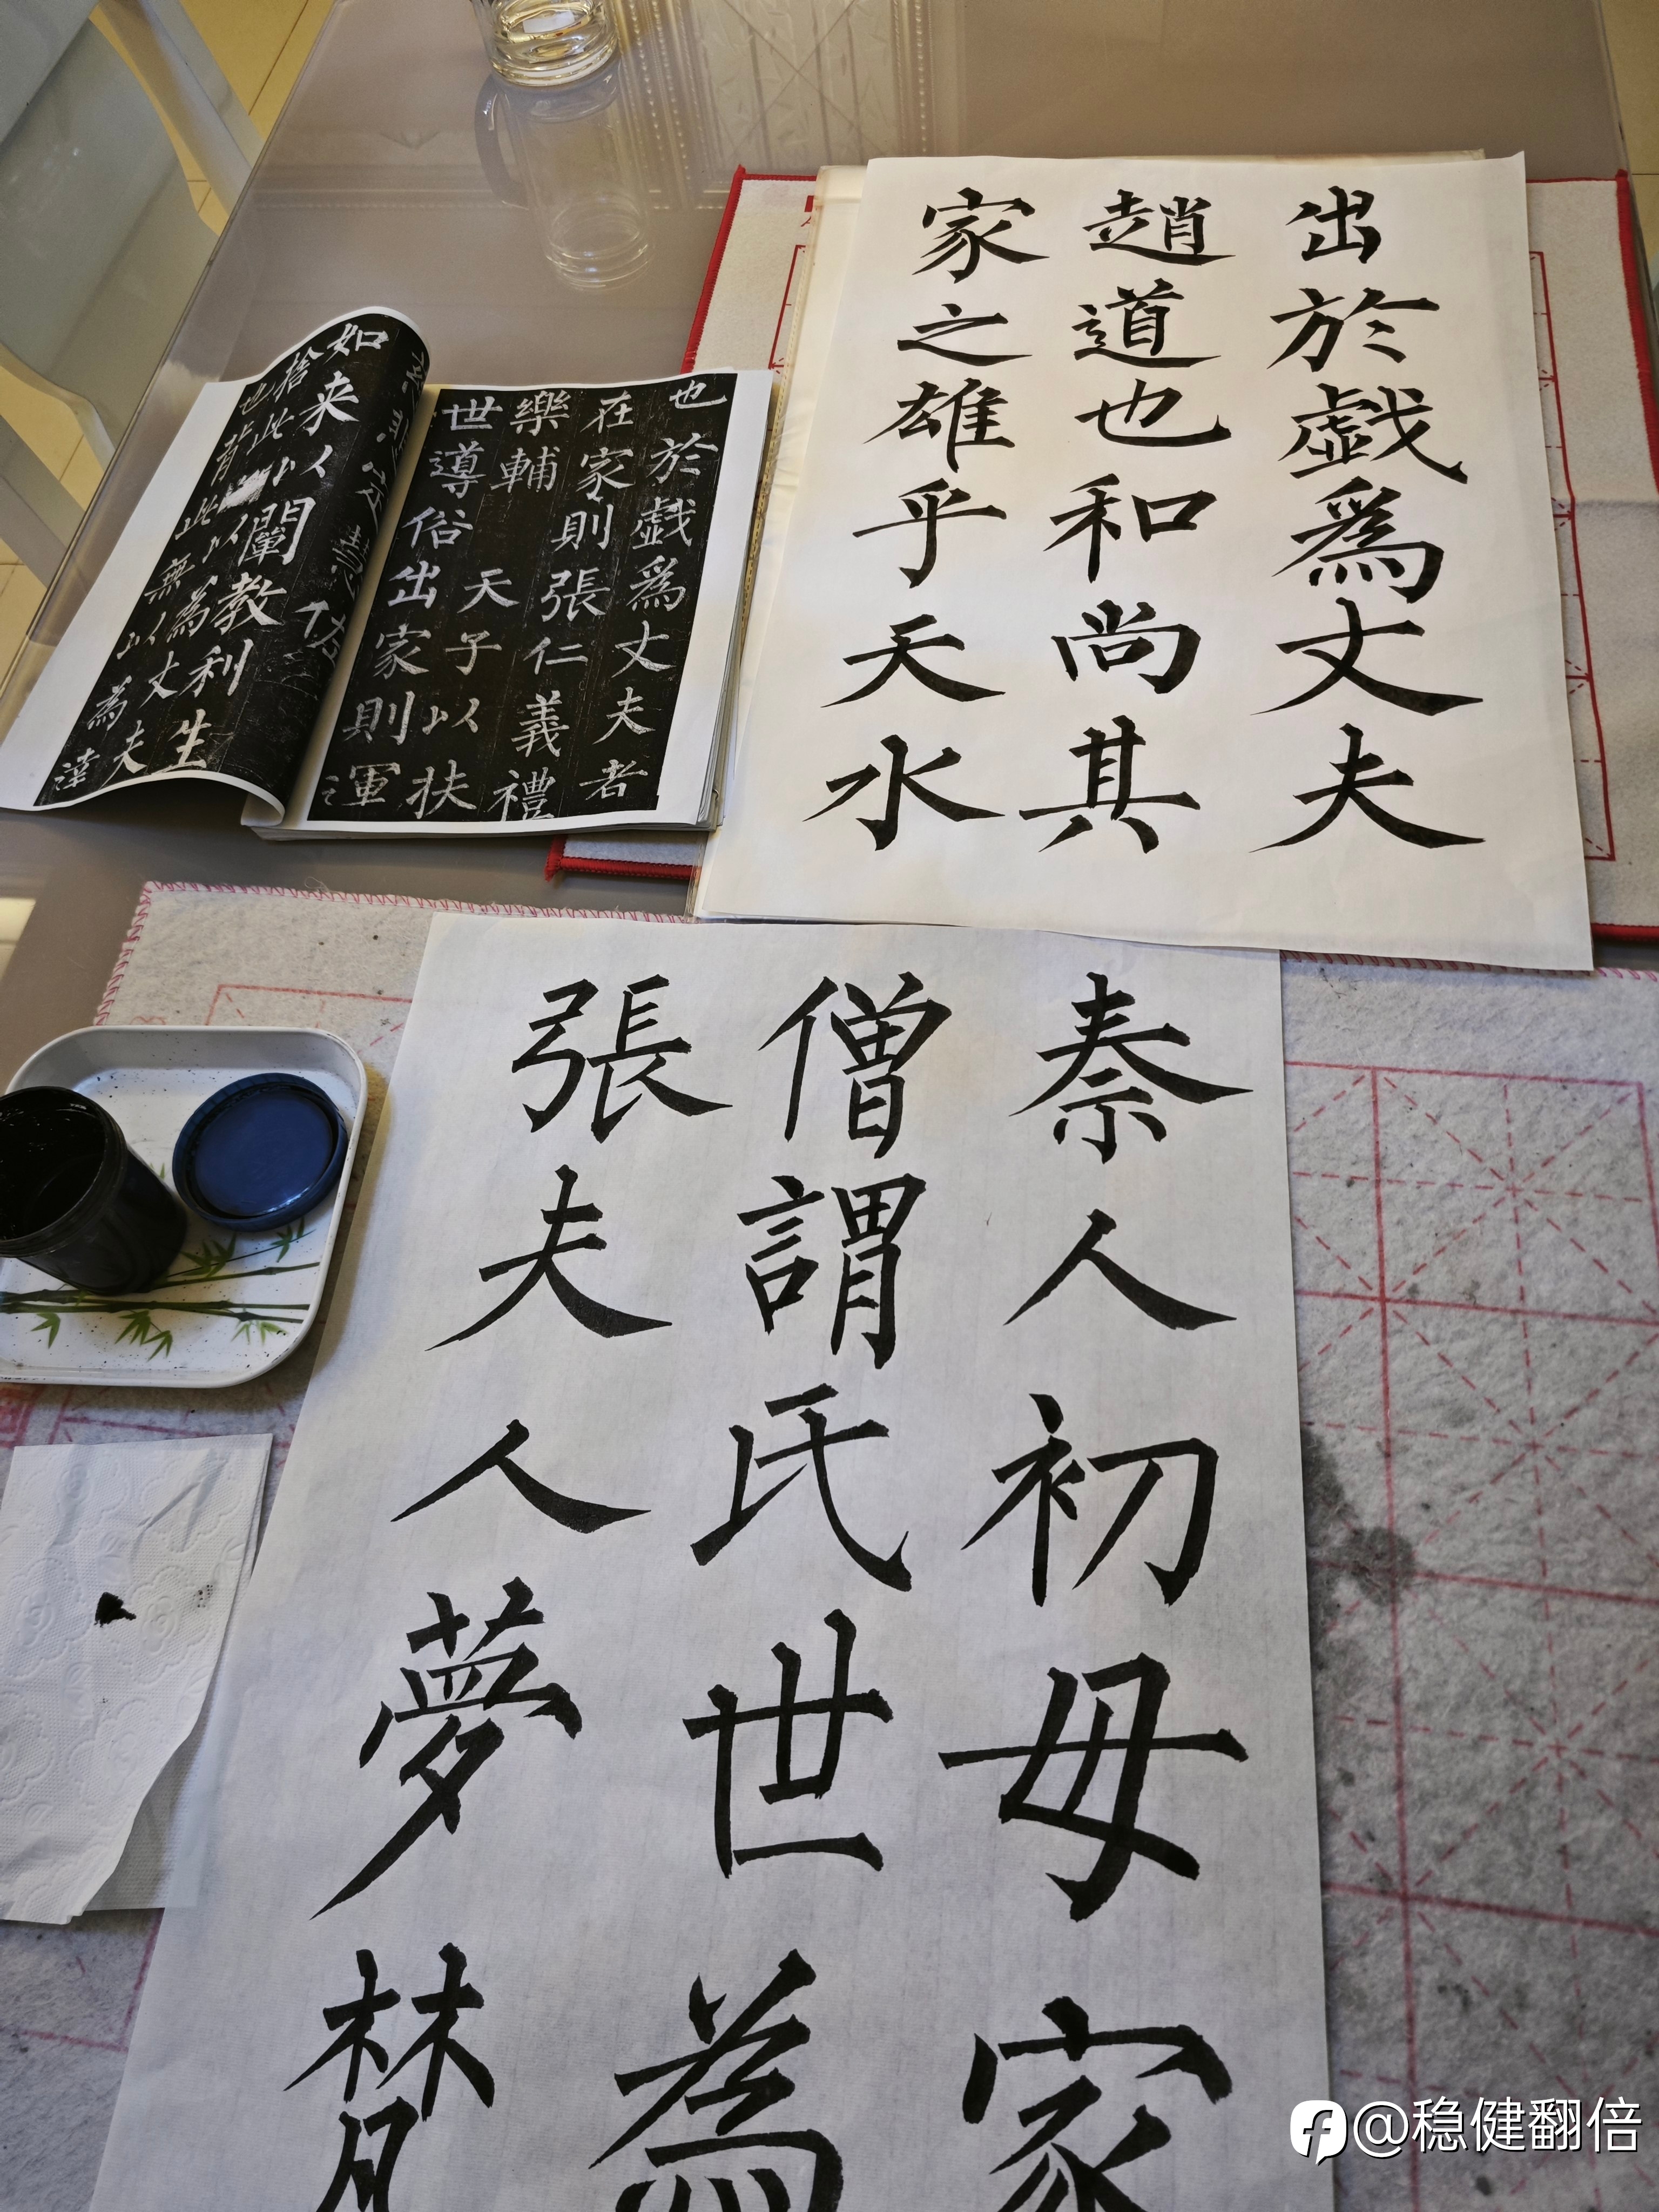 出於戲爲丈夫
趙道也和尚其
家之雄乎天水
也於戲爲丈夫者
在家則張仁義禮
樂輔天子以扶
世導俗出家則運
如来以闡教利生
捨此以為丈夫
也背此無以為達
秦人初母家
僧謂氏世為
張夫人夢梵
@稳健翻倍